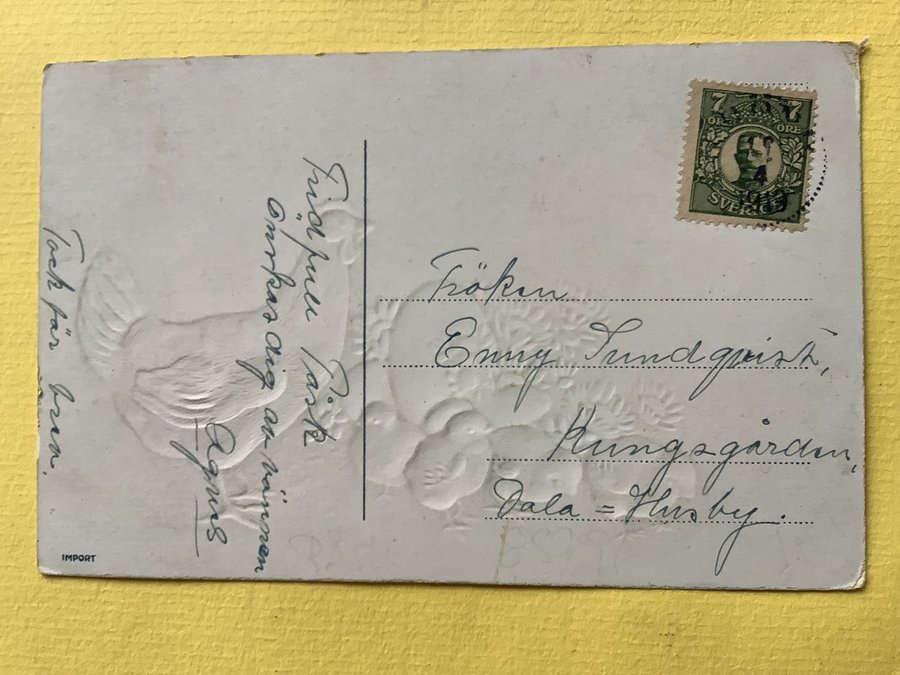 Fridfull Påsk
önskas dig av vännen
Agnes
Tack för
7 7
ÖRE ÖRE
SVERIGE
4
1919
Fröken
Enny Sundqvist,
Kungsgården,
Dala=Husby.
IMPORT